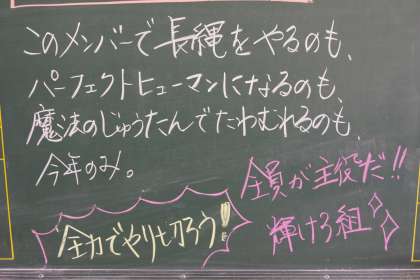 このメンバーで長縄をやるのも、
パーフェクトヒューマンになるのも、
魔法のじゅうたんでたわむれるのも、
今年のみ。
全員が主役だ!!
輝け3組
全力でやり切ろう!